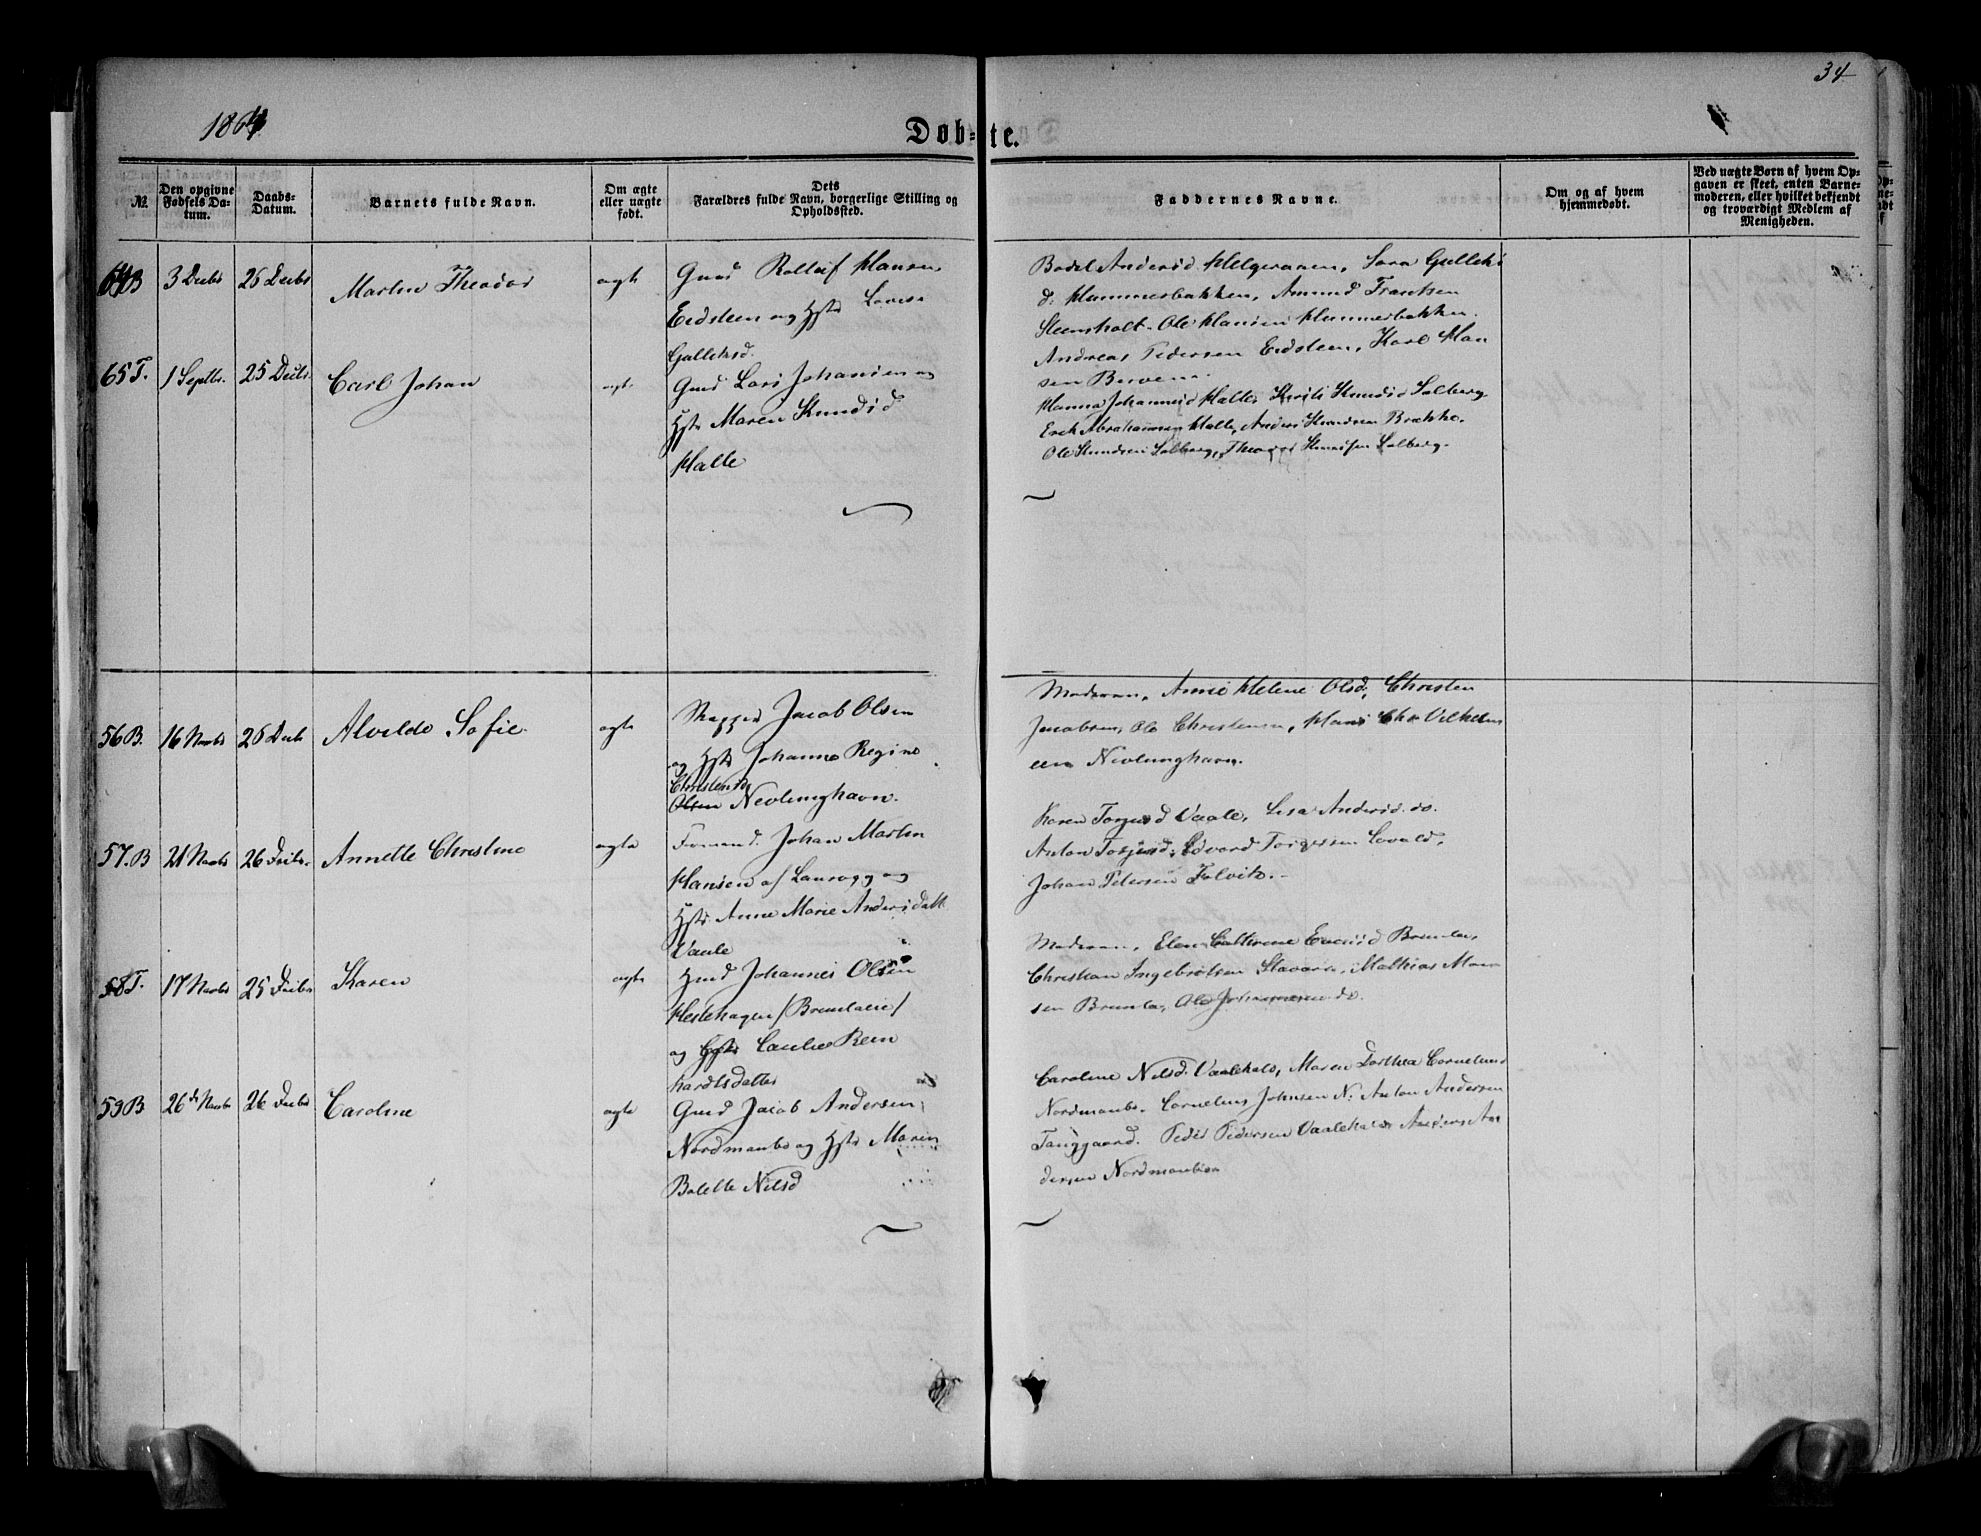 34
1864
Døb-te.
№
Den opgivne Fødsels Da-tum.
Daabs-Datum.
Barnets fulde Navn.
Om ægte eller uægte født.
Dets Forældres fulde Navn, borgerlige Stilling og Opholdssted.
Faddernes Navne.
Om og af hvem hjemmedøbt.
Ved uægte Børn af hvem Op-gaven er skeet, enten Barne-moderen, eller hvilket bekjendt og troværdigt Medlem af Menigheden.
64B 3 Decbr 26 Decbr Martin Theodor ægte Gmd Rolluf Hansen
Eidsteen og Hstr Lovise
Gulleksd.
Bodel Andersd Helgeraaen, Sara Gulleks
d: Hammerbakken, Amund Frantsen
Steensholt. Ole Hansen Hammerbakken.
Andreas Pedersen Eidsteen, Karl Han
sen Berven.
65T. 1 Septbr. 25 Decbr. Carl Johan ægte Gmd Lars Johansen og
Hstr Maren Knudsd
Halle
Hanna Johannesd Halle, Knudsd Solberg
Erik Abrahamsen Halle, Anders Knudsen Brække.
Ole Knudsen Solberg, Theodor Knudsen Solberg.
56B. 16 Novbr 26 Decbr Alvilde Sofie. ægte Skipper Jacob Olsen
og Hstr Johanne Regine
Christensd
Olsen Nevlunghavn.
Moderen, Anne Helene Olsd, Christen
Jacobsen, Ole Christensen, Hans Chr Vilhelm
sen Nevlunghavn.
57.B 21 Novbr 26 Decbr. Annette Christine ægte Formand Johan Martin
Hansen af Laurvig og
Hstr Anne Marie Andersdatt
Vaale
Karen Torjusd Vaale, Lisa Andersd. do.
Anton Torjusd, Edvard Torgersen Lovald,
Johan Petersen Folvik.
58T. 17 Novbr 25 Decbr Karen ægte Hmd Johannes Olsen
Hestehagen /Bremlaeie/
og Hstr Cecilie Rein
hardtsdatter
Moderen, Elen Cathrine Bremla,
Christian Ingebretsen Stavern, Mathias Han
sen Bremla, Ole Johannesen do.
59B 26de Novbr 26 Decbr Caroline ægte Gmd Jacob Andersen
Nordmanbo og Hstr Maren
Bolette Nilsd
Caroline Nilsd. Vaalehals, Maren Dorthea Corneliusd
Nordmanbo. Cornelius Johnsen N: Anton Andersen
Tanggaard. Peder Pedersen Vaalehals Anders An
dersen Nordmanboen